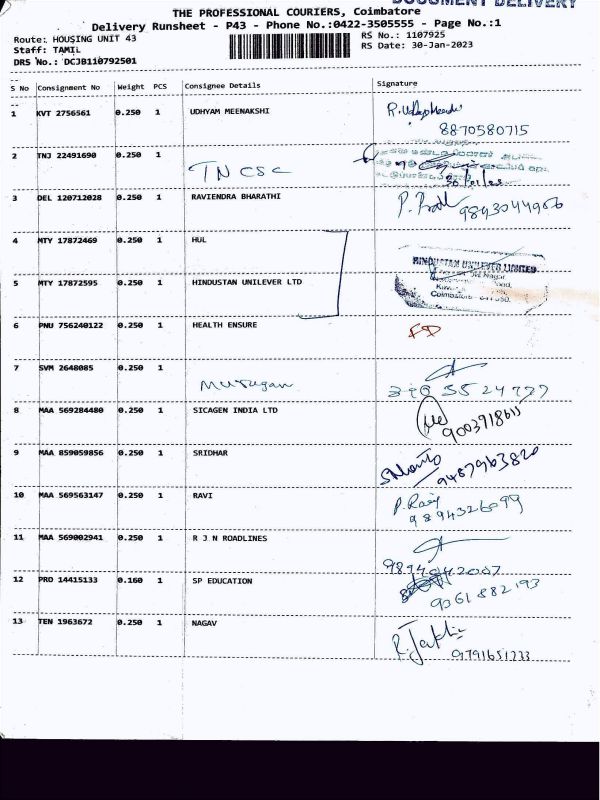 DOCUMENT DELIVERY
THE PROFESSIONAL COURIERS, Coimbatore
Delivery Runsheet - P43 - Phone No.:0422-3505555 - Page No.:1
Route: HOUSING UNIT 43
Staff: TAMIL
DRS No.: DCJB110792501
RS No.: 1107925
RS Date: 30-Jan-2023
S No Consignment No Weight PCS Consignee Details Signature
1 KVT 2756561 0.250 1 UDHYAM MEENAKSHI
8870580715
2 TNJ 22491690 0.250 1 TNCSC
3 DEL 120712028 0.250 1 RAVIENDRA BHARATHI 9843044906
4 MTY 17872469 0.250 1 HUL
HINDUSTAN UNILEVER LIMITED
5 MTY 17872595 0.250 1 HINDUSTAN UNILEVER LTD
6 PNU 756240122 0.250 1 HEALTH ENSURE
7 SVM 2648085 0.250 1 Murugan
8 MAA 569284480 0.250 1 SICAGEN INDIA LTD
9 MAA 859059856 0.250 1 SRIDHAR 9487963820
10 MAA 569563147 0.250 1 RAVI P. Ravi
9894326099
11 MAA 569002941 0.250 1 R J N ROADLINES
12 PRD 14415133 0.160 1 SP EDUCATION
9361882193
13 TEN 1963672 0.250 1 NAGAV
9791651233